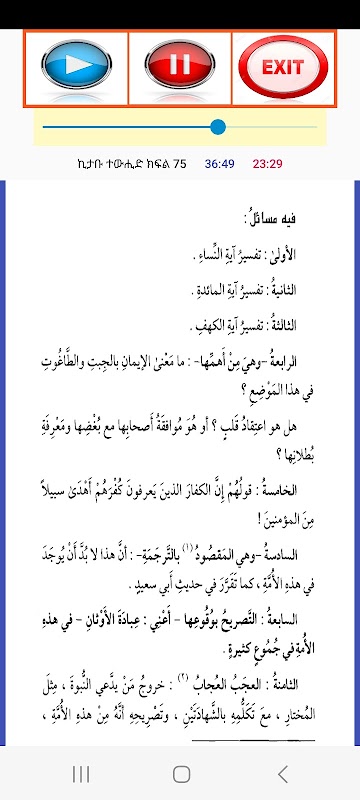 EXIT
ኪታቡ ተውሒድ ክፍል 75 36:49 23:29
فيه مسائلُ :
الأولىٰ : تفسيرُ آيةِ النِّساءِ .
الثانيةُ : تفسيرُ آيةِ المائدةِ .
الثالثةُ : تفسيرُ آيةِ الكهفِ .
الرابعةُ -وهيَ مِنْ أَهمِّها- : ما مَعْنىٰ الإيمانِ بالجِبتِ والطَّاغُوتِ
في هذا المَوْضِعِ ؟
هل هو اعتِقادُ قَلبٍ ؟ أو هُوَ مُوافقَةُ أَصحابِها مع بُغْضِها ومَعْرِفَةِ
بُطلانِها ؟
الخامسةُ : قولُهُمْ إِنَّ الكفارَ الذينَ يَعرفونَ كُفْرَهُمْ أَهْدَىٰ سبيلاً
مِنَ المؤمنينَ !
السادسةُ -وهي المَقصُودُ (١) بالتَّرجَمَةِ- : أنَّ هذا لا بُدَّ أَنْ يُوجَدَ
في هذِهِ الأُمَّةِ ، كما تَقَرَّرَ في حديثِ أَبي سعيدٍ .
السابعةُ : التَّصريحُ بوُقُوعِها - أَعْنِي : عِبادَةَ الأَوْثانِ - في هذهِ
الأُمةِ في جُمُوعٍ كثيرةٍ .
الثامنةُ : العجَبُ العُجابُ (٢) : خروجُ مَنْ يدَّعي النُّبوةَ ، مِثلَ
المُختارِ ، معَ تَكلُّمِهِ بالشَّهادَتَيْنِ ، وتَصْرِيحِهِ أنَّهُ مِنْ هذِهِ الأُمَّةِ ،